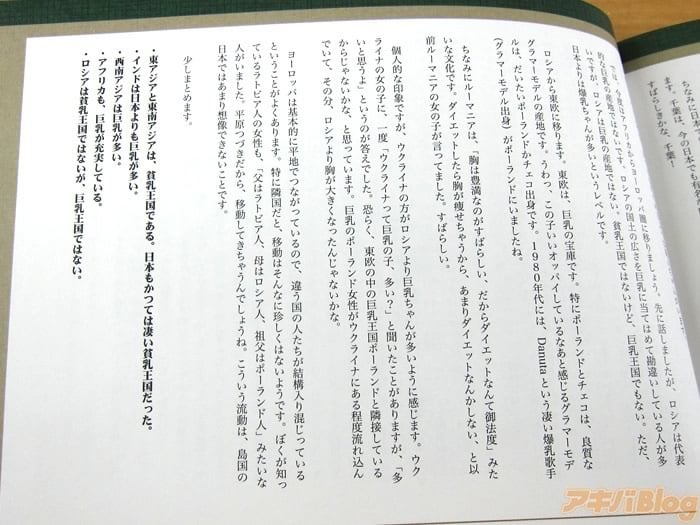 では、今度はアフリカからヨーロッパ圏に移りましょう。先に話しましたが、ロシアは代表
的な巨乳の産地ではないです。ロシアの国土の広さを巨乳に当てはめて勘違いしている人が多
いですが、ロシアは巨乳の産地ではない。貧乳王国ではないけど、巨乳王国でもない。ただ、
日本よりは爆乳ちゃんが多いというレベルです。
ロシアから東欧に移ります。東欧は、巨乳の宝庫です。特にポーランドとチェコは、良質な
グラマーモデルの産地です。うわっ、この子いいオッパイしているなあと感じるグラマーモデ
ルは、だいたいポーランドかチェコ出身です。1980年代には、Danutaという凄い爆乳歌手
(グラマーモデル出身)がポーランドにいましたね。
ちなみにルーマニアは、「胸は豊満なのがすばらしい、だからダイエットなんて御法度」みた
いな文化です。ダイエットしたら胸が痩せちゃうから、あまりダイエットなんかしない、と以
前ルーマニアの女の子が言ってました。すばらしい。
個人的な印象ですが、ウクライナの方がロシアより巨乳ちゃんが多いように感じます。ウク
ライナの女の子に、一度「ウクライナって巨乳の子、多い?」と聞いたことがありますが、「多
いと思うよ」というのが答えでした。恐らく、東欧の中の巨乳王国ポーランドと隣接している
からじゃないかな、と思っています。巨乳のポーランド女性がウクライナにある程度流れ込ん
でいて、その分、ロシアより胸が大きくなったんじゃないかな。
ヨーロッパは基本的に平地でつながっているので、違う国の人たちが結構入り混じっている
ということがよくあります。特に隣国だと、移動はそんなに珍しくはないようです。ぼくが知っ
ているラトビア人の女性も、「父はラトビア人、母はロシア人、祖父はポーランド人」みたいな
人がいました。平原つづきだから、移動してきちゃうんでしょうね。こういう流動は、島国の
日本ではあまり想像できないことです。
少しまとめます。
・東アジアと東南アジアは、貧乳王国である。日本もかつては凄い貧乳王国だった。
・インドは日本よりも巨乳が多い。
・西南アジアは巨乳が多い。
・アフリカも、巨乳が充実している。
・ロシアは貧乳王国ではないが、巨乳王国ではない。
アキバBlog